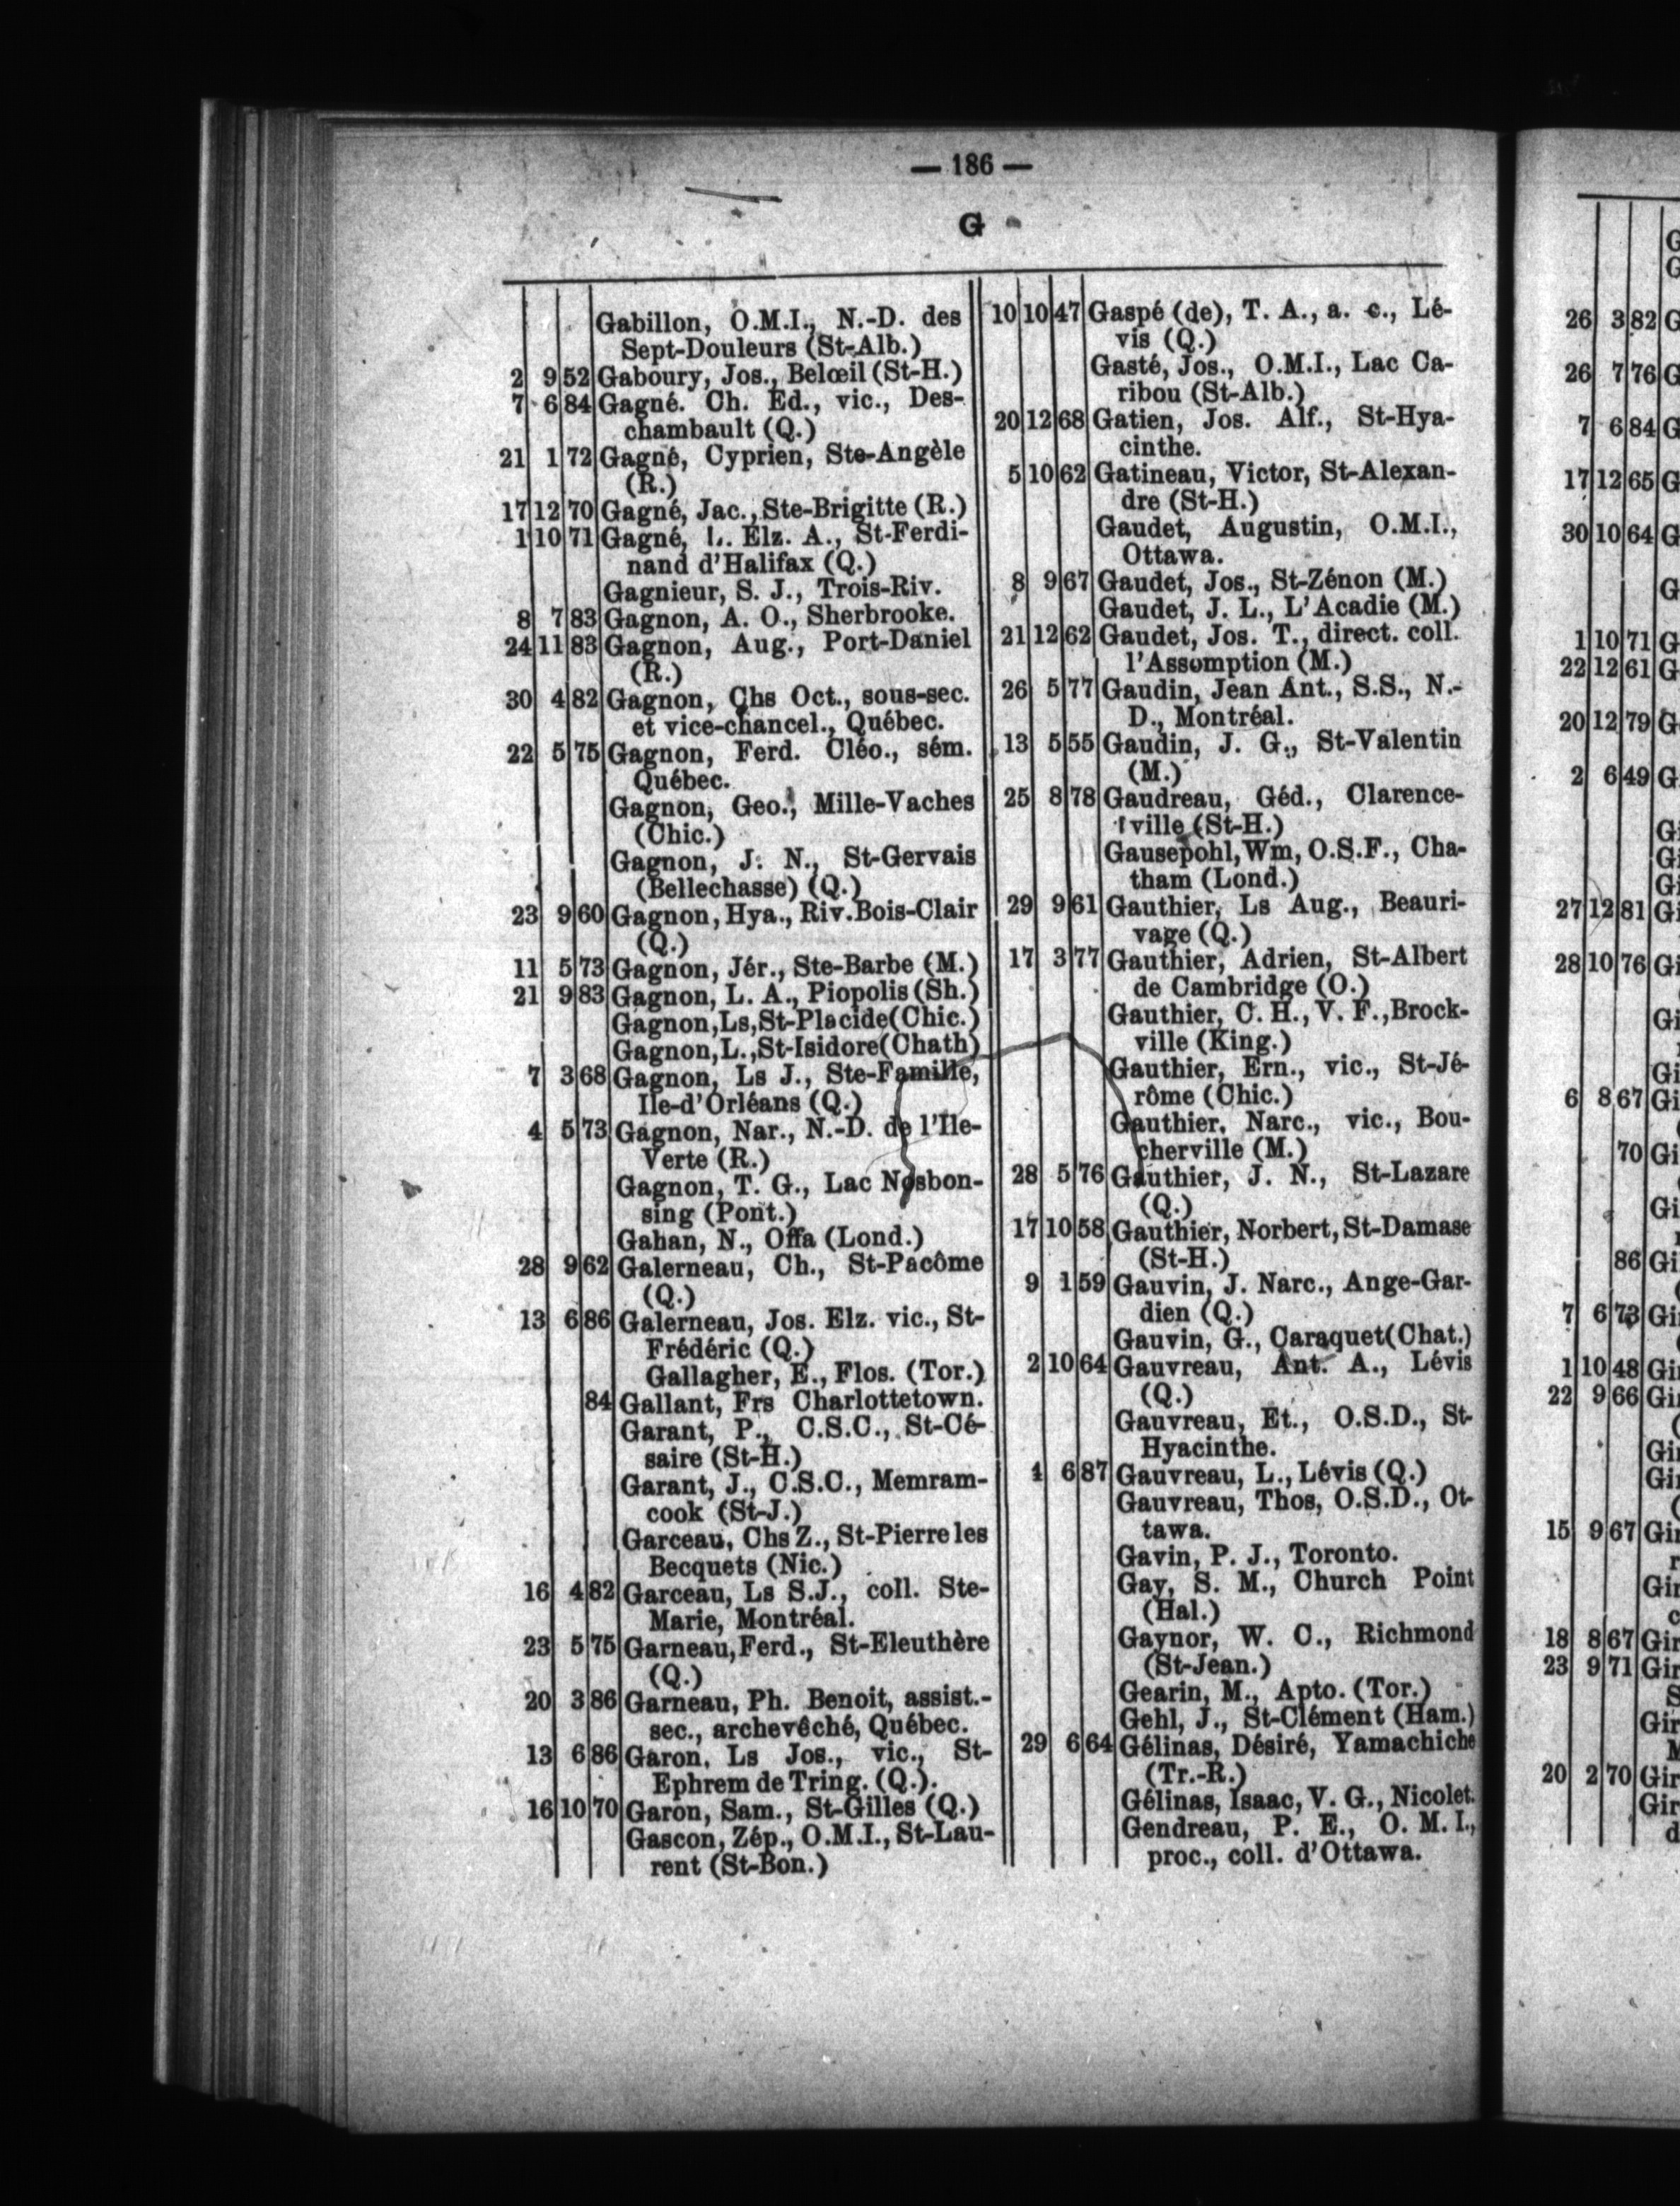 — 186 —
G
Gabillon, O.M.I., N.-D. des
Sept-Douleurs (St-Alb.)
2 9 52 Gaboury, Jos., Belœil (St-H.)
7 6 84 Gagné. Ch. Ed., vic., Des-
chambault (Q.)
21 1 72 Gagné, Cyprien, Ste-Angèle
(R.)
17 12 70 Gagné, Jac., Ste-Brigitte (R.)
1 10 71 Gagné, L. Elz. A., St-Ferdi-
nand d'Halifax (Q.)
Gagnieur, S. J., Trois-Riv.
8 7 83 Gagnon, A. O., Sherbrooke.
24 11 83 Gagnon, Aug., Port-Daniel
(R.)
30 4 82 Gagnon, Chs Oct., sous-sec.
et vice-chancel., Québec.
22 5 75 Gagnon, Ferd. Cléo., sém.
Québec.
Gagnon, Geo., Mille-Vaches
(Chic.)
Gagnon, J. N., St-Gervais
(Bellechasse) (Q.)
23 9 60 Gagnon, Hya., Riv. Bois-Clair
(Q.)
11 5 73 Gagnon, Jér., Ste-Barbe (M.)
21 9 83 Gagnon, L. A., Piopolis (Sh.)
Gagnon, Ls, St-Placide (Chic.)
Gagnon, L., St-Isidore (Chath)
7 3 68 Gagnon, Ls J., Ste-Famille,
Ile-d'Orléans (Q.)
4 5 73 Gagnon, Nar., N.-D. de l'Ile-
Verte (R.)
Gagnon, T. G., Lac Nosbon-
sing (Pont.)
Gahan, N., Offa (Lond.)
28 9 62 Galerneau, Ch., St-Pacôme
(Q.)
13 6 86 Galerneau, Jos. Elz. vic., St-
Frédéric (Q.)
Gallagher, E., Flos. (Tor.)
84 Gallant, Frs Charlottetown.
Garant, P., C.S.C., St-Cé-
saire (St-H.)
Garant, J., C.S.C., Memram-
cook (St-J.)
Garceau, Chs Z., St-Pierre les
Becquets (Nic.)
16 4 82 Garceau, Ls S.J., coll. Ste-
Marie, Montréal.
23 5 75 Garneau, Ferd., St-Eleuthère
(Q.)
20 3 86 Garneau, Ph. Benoit, assist.-
sec., archevêché, Québec.
13 6 86 Garon, Ls Jos., vic., St-
Ephrem de Tring. (Q.).
16 10 70 Garon, Sam., St-Gilles (Q.)
Gascon, Zép., O.M.I., St-Lau-
rent (St-Bon.)
10 10 47 Gaspé (de), T. A., a. c., Lé-
vis (Q.)
Gasté, Jos., O.M.I., Lac Ca-
ribou (St-Alb.)
20 12 68 Gatien, Jos. Alf., St-Hya-
cinthe.
5 10 62 Gatineau, Victor, St-Alexan-
dre (St-H.)
Gaudet, Augustin, O.M.I.,
Ottawa.
8 9 67 Gaudet, Jos., St-Zénon (M.)
Gaudet, J. L., L'Acadie (M.)
21 12 62 Gaudet, Jos. T., direct. coll.
l'Assomption (M.)
26 5 77 Gaudin, Jean Ant., S.S., N.-
D., Montréal.
13 5 55 Gaudin, J. G., St-Valentin
(M.)
25 8 78 Gaudreau, Géd., Clarence-
ville (St-H.)
Gausepohl, Wm, O.S.F., Cha-
tham (Lond.)
29 9 61 Gauthier, Ls Aug., Beauri-
vage (Q.)
17 3 77 Gauthier, Adrien, St-Albert
de Cambridge (O.)
Gauthier, C. H., V. F., Brock-
ville (King.)
Gauthier, Ern., vic., St-Jé-
rôme (Chic.)
Gauthier, Narc., vic., Bou-
cherville (M.)
28 5 76 Gauthier, J. N., St-Lazare
(Q.)
17 10 58 Gauthier, Norbert, St-Damase
(St-H.)
9 1 59 Gauvin, J. Narc., Ange-Gar-
dien (Q.)
Gauvin, G., Caraquet (Chat.)
2 10 64 Gauvreau, Ant. A., Lévis
(Q.)
Gauvreau, Et., O.S.D., St-
Hyacinthe.
4 6 87 Gauvreau, L., Lévis (Q.)
Gauvreau, Thos, O.S.D., Ot-
tawa.
Gavin, P. J., Toronto.
Gay, S. M., Church Point
(Hal.)
Gaynor, W. C., Richmond
(St-Jean.)
Gearin, M., Apto. (Tor.)
Gehl, J., St-Clément (Ham.)
29 6 64 Gélinas, Désiré, Yamachiche
(Tr.-R.)
Gélinas, Isaac, V. G., Nicolet.
Gendreau, P. E., O. M. I.,
proc., coll. d'Ottawa.
26 3 82 G
26 7 76 G
7 6 84 G
17 12 65 G
30 10 64 G
1 10 71 G
22 12 61 G
20 12 79 G
2 6 49 G
27 12 81 Gi
28 10 76 Gi
6 8 67 Gi
70 Gi
86 Gi
7 6 73 Gi
1 10 48 Gi
22 9 66 Gi
15 9 67 Gir
18 8 67 Gir
23 9 71 Gir
20 2 70 Gir